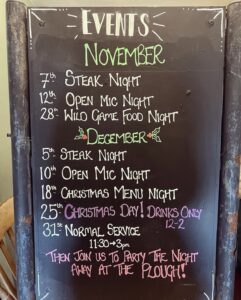 EVENTS
NOVEMBER
7th STEAK NIGHT
12th OPEN MIC NIGHT
28th WILD GAME FOOD NIGHT
DECEMBER
5th STEAK NIGHT
10th OPEN MIC NIGHT
18th CHRISTMAS MENU NIGHT
25th CHRISTMAS DAY! DRINKS ONLY
12-2
31st NORMAL SERVICE
11:30→3pm
THEN JOIN US TO PARTY THE NIGHT
AWAY AT THE PLOUGH!